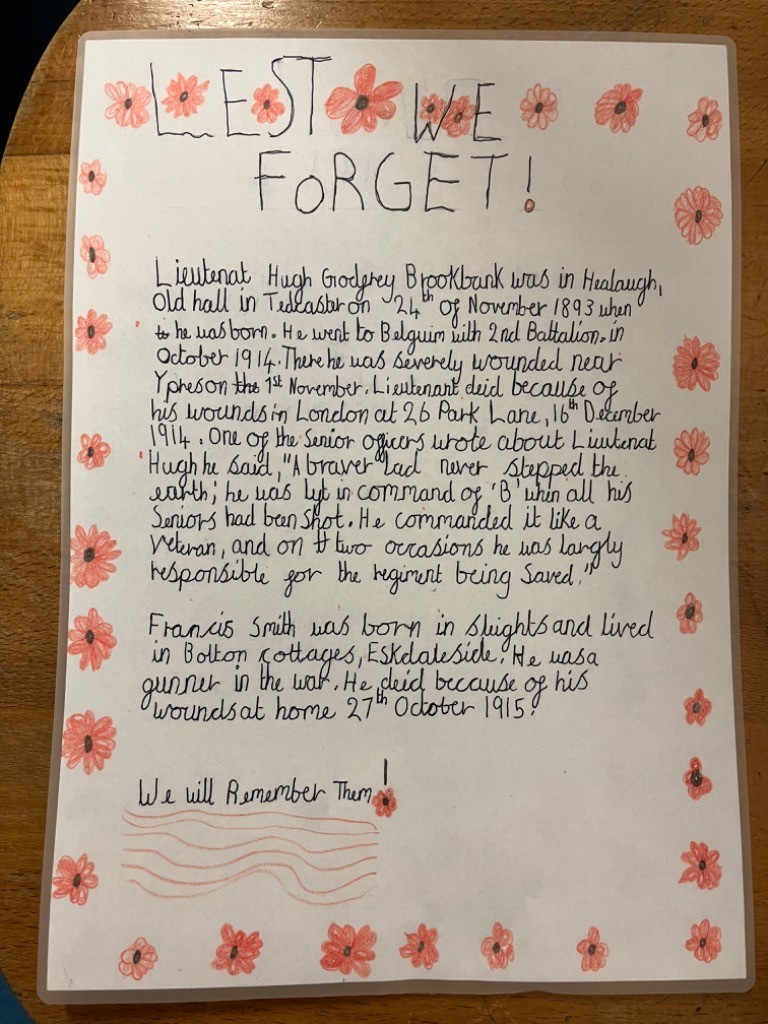 LEST WE
FORGET!
Lieutenat Hugh Godfrey Brookbank was in Healaugh,
Old hall in Tedcaster on 24th of November 1893 when
he was born. He went to Belguim with 2nd Battalion. in
October 1914. There he was severely wounded near
Ypres on the 1st November. Lieutenant deid because of
his wounds in London at 26 Park Lane, 16th December
1914. One of the Senior officers wrote about Lieutenat
Hugh he said, "A braver lad never stepped the
earth; he was lyt in command of 'B' when all his
Seniors had been shot. He commanded it like a
veteran, and on two occasions he was largly
responsible for the regiment being saved."
Francis Smith was born in Sleights and lived
in Bolton cottages, Eskdaleside. He was a
gunner in the war. He deid because of his
wounds at home 27th October 1915.
We will Remember Them!